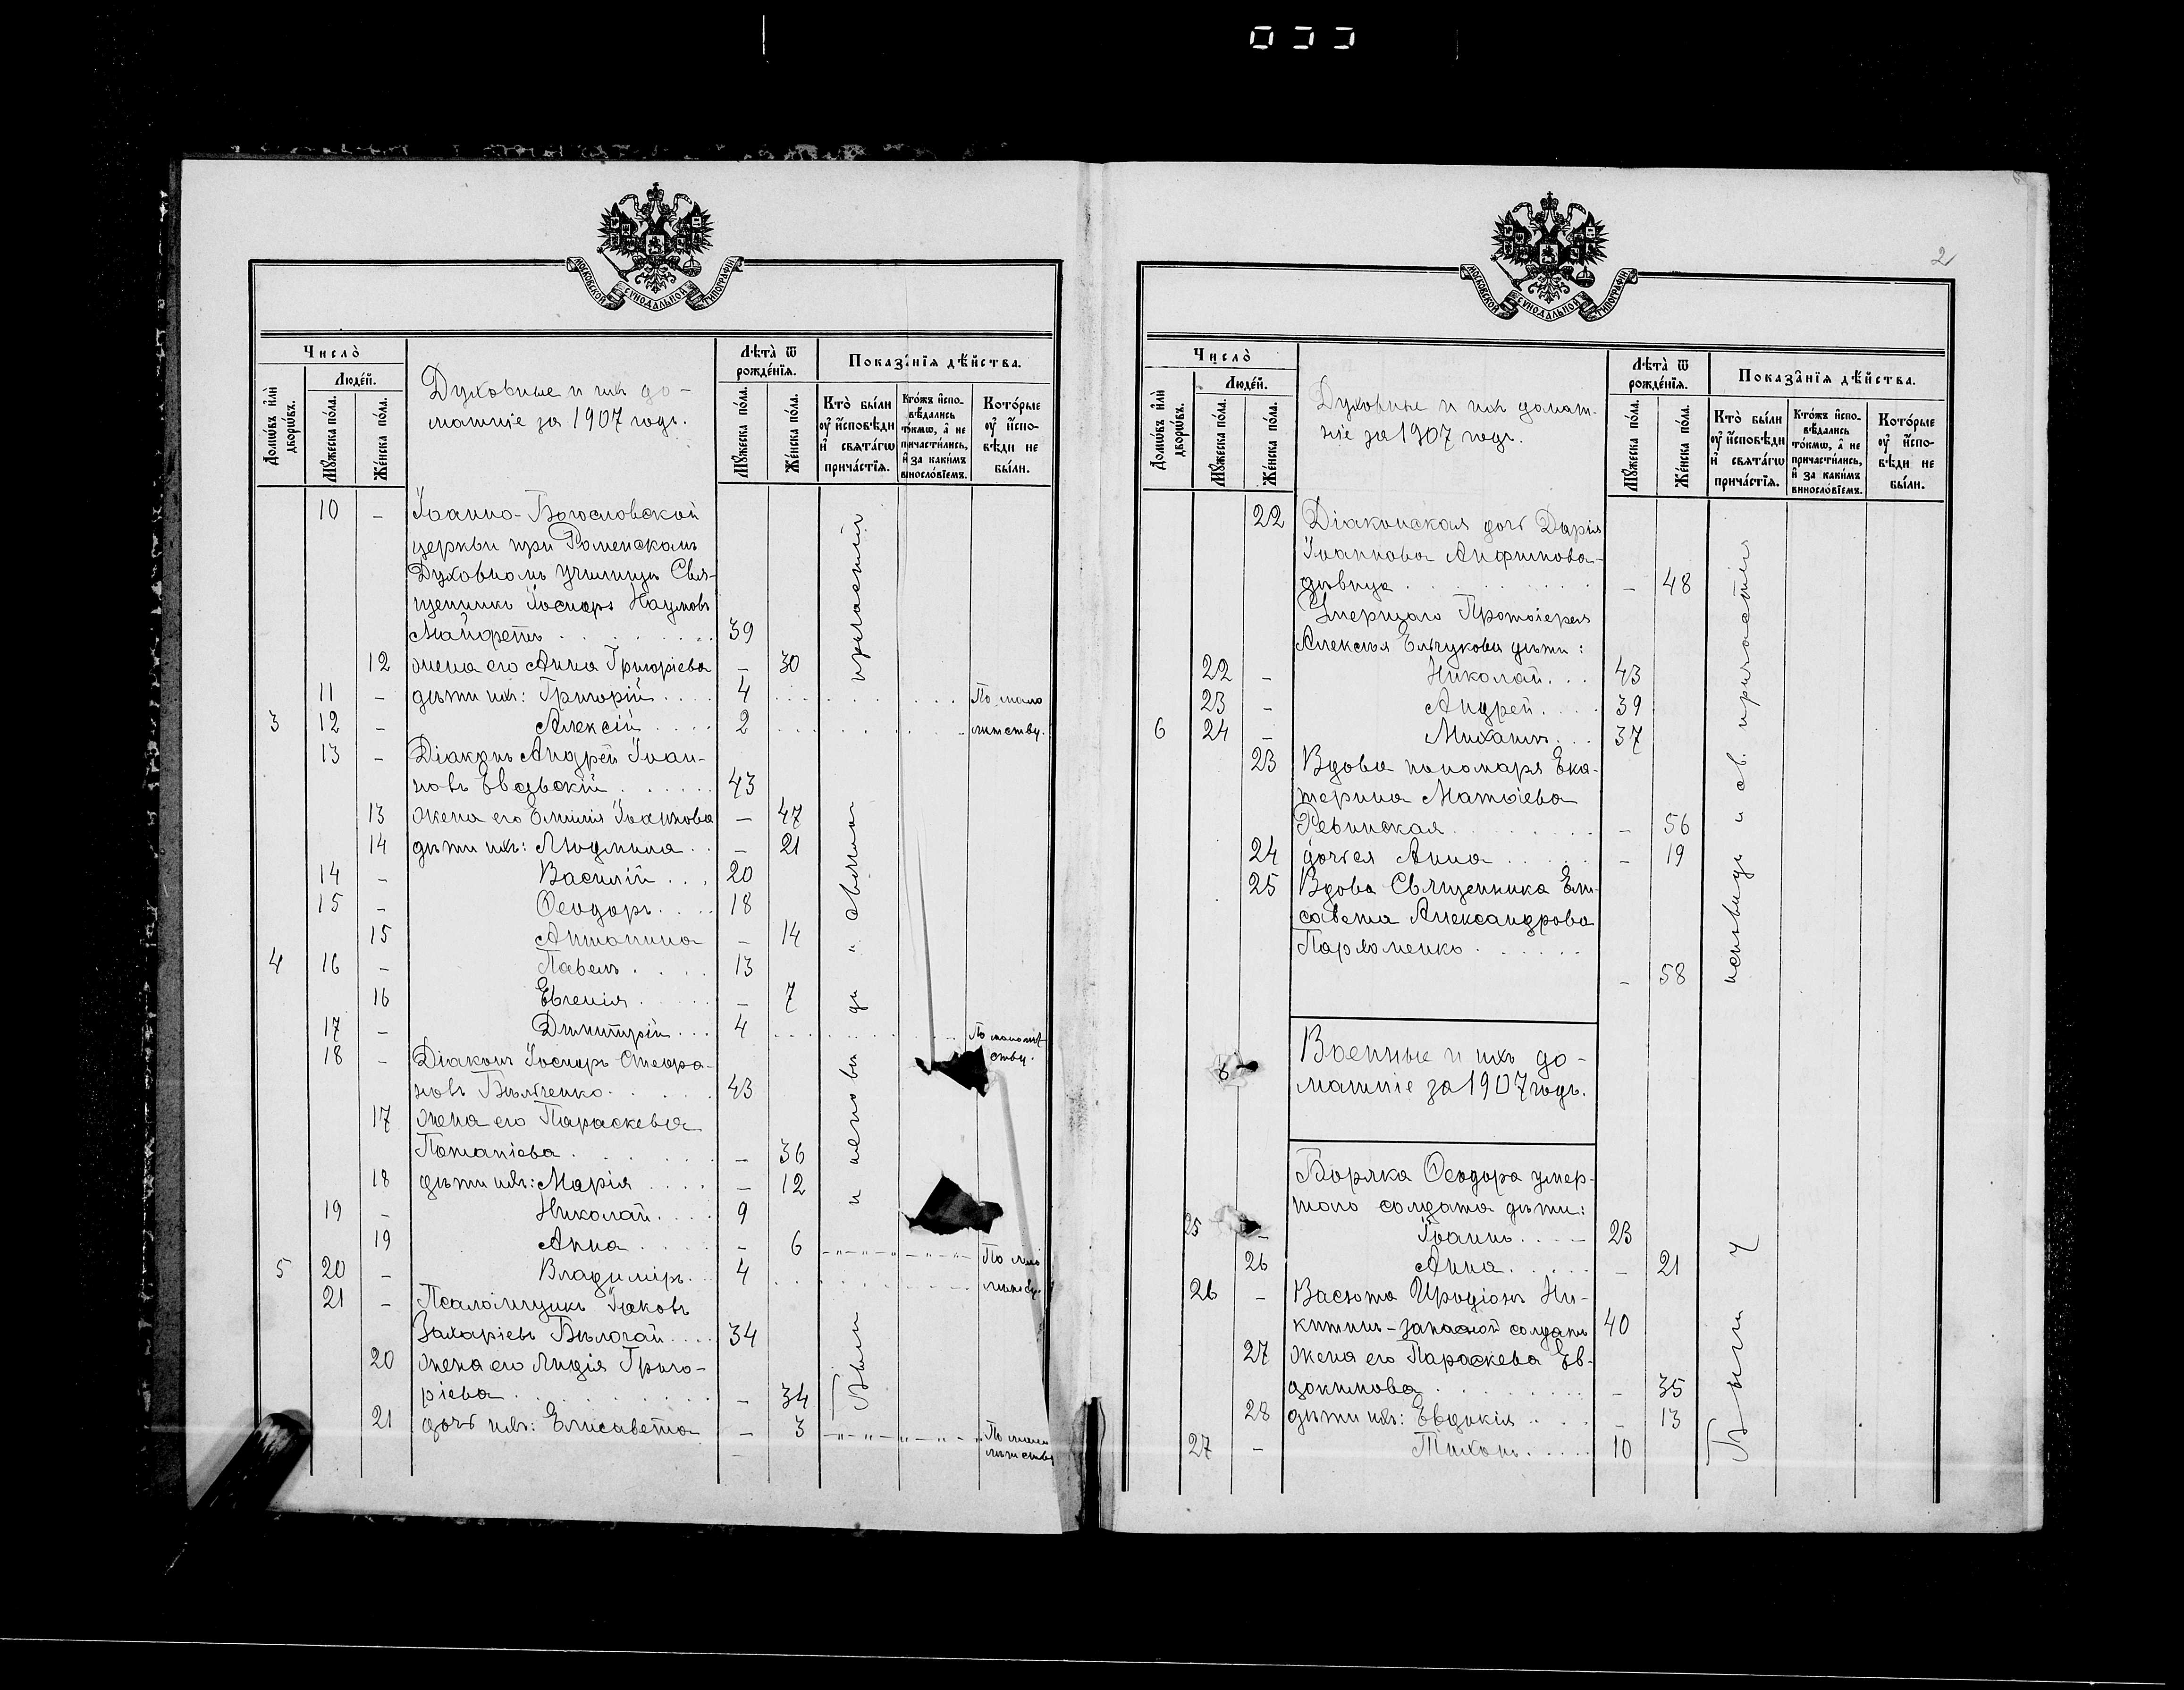 МОСКОВСКОЙ СУНОДАЛЬНОЙ ТИПОГРАФІИ
Число̀
Лѣта̀ ѿ рожде́нїя.
Показа́нїя дѣ́йства.
Домѡ́въ и҆лѝ дворѡ́въ.
Люде́й.
Мꙋ́жеска по́ла.
Же́нска по́ла.
Духовные и ихъ до-
машніе за 1907 годъ.
Мꙋ́жеска по́ла.
Же́нска по́ла.
Кто̀ бы́ли оу҆ и҆сповѣди и҆ свѧта́гѡ прича́стїѧ.
Кто́жъ и҆спо-вѣ́дались то́кмѡ, а҆ не причасти́лись, и҆ за каки́мъ винослóвїемъ.
Кото́рые оу҆ и҆спо-вѣди не бы́ли.
10 - Іоанно-Богословской
церкви при Роменскомъ
Духовномъ училищѣ Свя-
щенникъ Іосифъ Наумовъ
39
12 жена его Анна Григоріева - 30
11 - дѣти ихъ: Григорій 4 По мало
3 12 - Алексій 2 лѣтству.
13 - Діаконъ Андрей Іоан-
новъ 43
13 жена его Емилія Іоаннова - 47
14 дѣти ихъ: Людмила - 21
14 - Василій 20
15 - Ѳеодоръ 18
15 Антонина - 14
4 16 - Павелъ 13
16 Евгенія - 7
17 - Димитрій 4 По малолѣт
18 - Діаконъ Іосифъ Стефа- ству.
новъ Бѣличенко 43
17 жена его Параскева
Потапіева - 36
18 дѣти ихъ: Марія - 12
19 - Николай 9
19 Анна - 6
По мало
5 20 - Владиміръ 4 лѣтству.
21 - Псаломщикъ Іаковъ
Захаріевъ 34
20 жена его Лидія Григо-
ріева - 34
21 дочь ихъ: Елисавета - 3 По мало
лѣтству
Были
2
МОСКОВСКОЙ СУНОДАЛЬНОЙ ТИПОГРАФІИ
Число̀
Лѣта̀ ѿ рожде́нїя.
Показа́нїя дѣ́йства.
Домѡ́въ и҆лѝ дворѡ́въ.
Люде́й.
Мꙋ́жеска по́ла.
Же́нска по́ла.
Духовные и ихъ домаш-
ніе за 1907 годъ.
Мꙋ́жеска по́ла.
Же́нска по́ла.
Кто̀ бы́ли оу҆ и҆сповѣди и҆ свѧта́гѡ прича́стїѧ.
Кто́жъ и҆спо-вѣ́дались то́кмѡ, а҆ не причасти́лись, и҆ за каки́мъ винослóвїемъ.
Кото́рые оу҆ и҆спо-вѣди не бы́ли.
22 Діаконская дочь Дарія
Іоаннова Анфимова-
дѣвица - 48
Умершаго Протоіерея
Алексѣя дѣти:
22 - Николай 43
23 - Андрей 39
6 24 - Михаилъ 37
23 Вдова пономаря Ека-
терина Матѳіева
Ревинская - 56
24 дочь ея Анна - 19
25 Вдова Священника Ели-
савета Александрова
Пархоменко
- 58
Военные и ихъ до-
машніе за 1907 годъ.
6
Боряка Ѳеодора умер-
шаго солдата дѣти:
25 - Іоаннъ 23
26 Анна - 21
26 - Васюта Иродіонъ Ни-
китинъ - запасной солдатъ 40
27 жена его Параскева Ев-
докимова - 35
28 дѣти ихъ: Евдокія - 13
27 - Тихонъ 10
Были у исповѣди и св. причастія